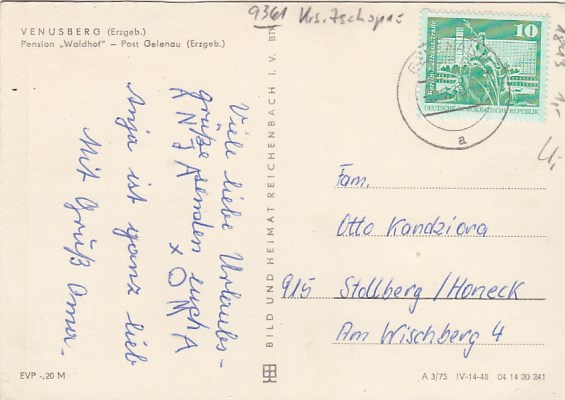 VENUSBERG (Erzgeb.)
Pension „Waldhof" – Post Gelenau (Erzgeb.)
9361 Krs. Zschopau
Viele liebe Urlaubs-
grüße senden euch
ANJA x OMA
Anja ist ganz lieb
Mit Gruß Oma.
EVP -,20 M
BILD UND HEIMAT REICHENBACH I. V.
10
Berlin, Rathausstraße
DEUTSCHE DEMOKRATISCHE REPUBLIK
a
Fam.
Otto Kandziora
915 Stollberg /Honeck
Am Wischberg 4
A 3/75 IV-14-48 04 14 20 241